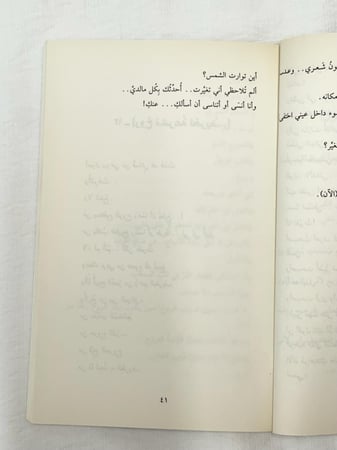 أين توارت الشمس؟
ألم تُلاحظي أني تغيّرت.. أُحدّثُك بكُل مالديّ..
وأنا أنسَى أو أتناسى أن أسألكِ... عنكِ!
٤١
ونُ شَعري.. وعند
مكانه.
وه داخل عيني اختفى
يّر؟
(الآن).